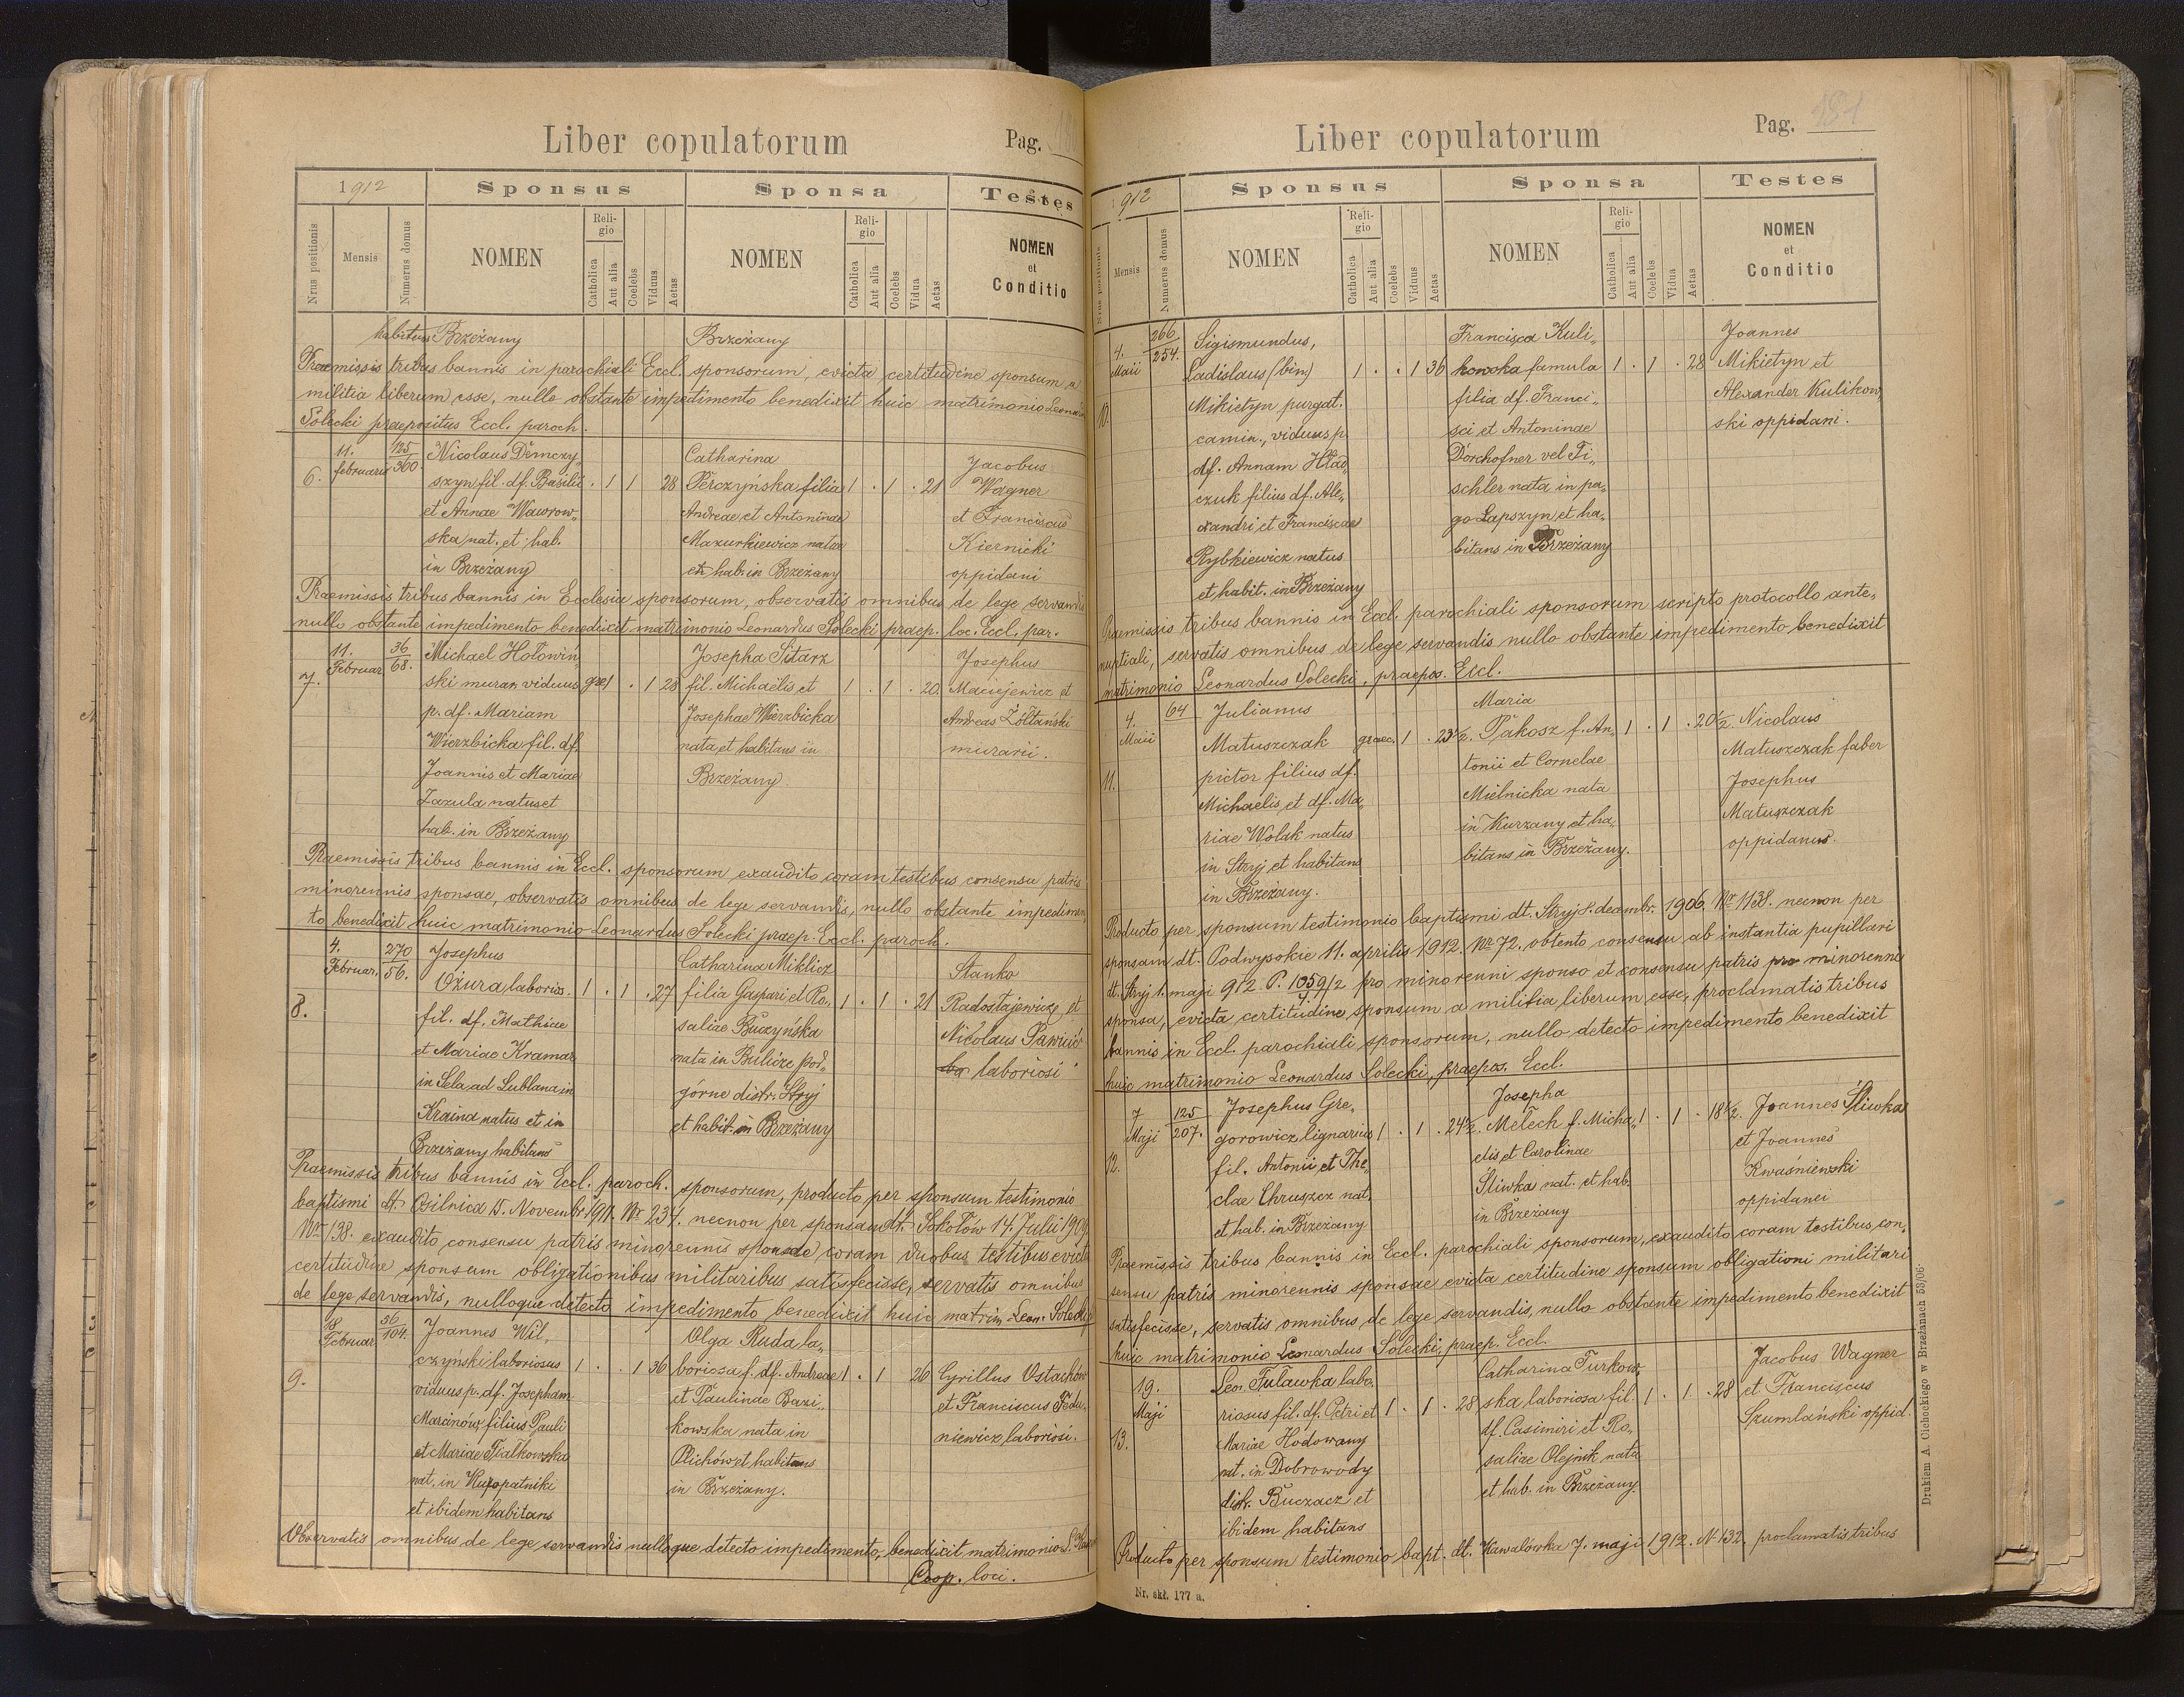 Liber copulatorum
Pag.
1912
Sponsus
Sponsa
Testes
Nrus positionis
Mensis
Numerus domus
NOMEN
Religio
Catholica
Aut alia
Coelebs
Viduus
Aetas
NOMEN
Religio
Catholica
Aut alia
Coelebs
Vidua
Aetas
NOMEN
et
Conditio
habitans Brzeżany
Brzeżany
Praemissis tribus bannis in parochiali Eccl. sponsorum, evicta certitudine sponsum a
militia liberum esse, nullo obstante impedimento benedixit huic matrimonio Leonardus
Solecki praepositus Eccl. paroch.
6.
11.
februarii
125
360.
Nicolaus Demczy„
szyn fil. df. Basilii . 1 1 28
et Annae Wawrow„
ska nat. et hab.
in Brzeżany
Catharina
Perczyńska filia 1 . 1 . 21
Andreae et Antoninae
Mazurkiewicz nata
et hab. in Brzeżany
Jacobus
Wagner
et Franciscus
Kiernicki
oppidani
Praemissis tribus bannis in Ecclesia sponsorum, observatis omnibus de lege servandis
nullo obstante impedimento benedixit matrimonio Leonardus Solecki praep. loc. Eccl. par.
7.
11.
Februar
36
68.
Michael Hołowiń„
ski murar. viduus gre 1 . 1 28
p. df. Mariam
Wierzbicka fil. df.
Joannis et Mariae
Zazula natus et
hab. in Brzeżany
Josepha Sitarz
fil. Michaëlis et 1 . 1 . 20.
Josephae Wierzbicka
nata et habitans in
Brzeżany
Josephus
Maciejewicz et
Andreas Żółtański
murarii.
Praemissis tribus bannis in Eccl. sponsorum exaudito coram testibus consensu patris
minorennis sponsae, observatis omnibus de lege servandis, nullo obstante impedimen„
to benedixit huic matrimonio Leonardus Solecki praep. Eccl. paroch.
8.
4.
Februar.
270
56.
Josephus
Ożura laborios. 1 . 1 . 27
fil. df. Mathiae
et Mariae Kramar
in Sela ad Lublana in
Kraina natus et in
Brzeżany habitans
Catharina Miklicz
filia Gaspari et Ro„ 1 . 1 . 21
saliae Buczyńska
nata in Bulicze pod„
górne distr. Stryj
et habit. in Brzeżany
Stanko
Radostajewicz et
Nicolaus Pawiuić
laboriosi
Praemissis tribus bannis in Eccl. paroch. sponsorum, producto per sponsum testimonio
baptismi dt. Osilnica 15. Novembr. 1911. Nr 234. necnon per sponsam dt. Sokołów 14. Julii 1909
Nr 138. exaudito consensu patris minorennis sponsae coram duobus testibus evicta
certitudine sponsum obligationibus militaribus satisfecisse, servatis omnibus
de lege servandis, nulloque detecto impedimento benedixit huic matrim. Leon. Solecki
9.
18
Februar
36
104.
Joannes Wil„
czyński laboriosus 1 . . 1 36
viduus p. df. Josepham
Marcinów filius Pauli
et Mariae Fiałkowska
nat. in Kuropatniki
et ibidem habitans
Olga Ruda la„
boriosa f. df. Andreae 1 . 1 26
et Paulinae Bazi„
kowska nata in
Olichów et habitans
in Brzeżany.
Cyrillus Ostachów
et Franciscus Fedu„
niewicz laboriosi.
Observatis omnibus de lege servandis nulloque detecto impedimento, benedixit matrimonio
Coop. loci.
Liber copulatorum
Pag. 181
912
Sponsus
Sponsa
Testes
Nrus positionis
Mensis
Numerus domus
NOMEN
Religio
Catholica
Aut alia
Coelebs
Viduus
Aetas
NOMEN
Religio
Catholica
Aut alia
Coelebs
Vidua
Aetas
NOMEN
et
Conditio
10.
4.
Maii
266
254.
Sigismundus,
Ladislaus (bin) 1 . . 1 36
Mikietyn purgat.
camin., viduus p.
df. Annam Hład„
czuk filius df. Ale„
xandri et Franciscae
Rybkiewicz natus
et habit. in Brzeżany
Francisca Kuli„
kowska famula 1 . 1 . 28
filia df. Franci„
sci et Antoninae
Dorchofner vel Fi„
schler nata in pa„
go Łapszyn et ha„
bitans in Brzeżany
Joannes
Mikietyn et
Alexander Kulikow„
ski oppidani.
Praemissis tribus bannis in Eccl. parochiali sponsorum scripto protocollo ante„
nuptiali, servatis omnibus de lege servandis nullo obstante impedimento benedixit
matrimonio Leonardus Solecki, praepos. Eccl.
11.
4.
Maii
64
Julianus
Matuszczak graec. 1 . 23½.
pictor filius df.
Michaelis et df. Ma„
riae Wolak natus
in Stryj et habitans
in Brzeżany.
Maria
Pakosz f. An„ 1 . 1 . 20½.
tonii et Cornelae
Mielnicka nata
in Kurzany et ha„
bitans in Brzeżany.
Nicolaus
Matuszczak faber
Josephus
Matuszczak
oppidanus.
Producto per sponsum testimonio baptismi dt. Stryj 8. decembr. 1906. Nr 1138. necnon per
sponsam dt. Podwysokie 11. aprilis 1912. Nr 72. obtento consensu ab instantia pupillari
dt. Stryj 1. maji 912. P. 1059/2 pro minorenni sponso et consensu patris pro minorenni
sponsa, evicta certitudine sponsum a militia liberum esse, proclamatis tribus
bannis in Eccl. parochiali sponsorum, nullo detecto impedimento benedixit
huic matrimonio Leonardus Solecki, praepos. Eccl.
12.
7
Maji
125
207.
Josephus Gre„
gorowicz lignarius 1 . 1 . 24½.
fil. Antonii et The„
clae Chruszcz nat.
et hab. in Brzeżany
Josepha
Melech f. Micha„ 1 . 1 . 18½.
elis et Carolinae
Śliwka nat. et hab.
in Brzeżany
Joannes Śliwka
et Joannes
Kwaśniewski
oppidanei
Praemissis tribus bannis in Eccl. parochiali sponsorum, exaudito coram testibus con„
sensu patris minorennis sponsae evicta certitudine sponsum obligationi militari
satisfecisse, servatis omnibus de lege servandis, nullo obstante impedimento benedixit
huic matrimonio Leonardus Solecki, praep. Eccl.
13.
19.
Maji
Leo. Tuławka labo„
riosus fil. df. Petri et 1 . 1 . 28
Mariae Hodowany
nat. in Dobrowody
distr. Buczacz et
ibidem habitans
Catharina Turkow„
ska laboriosa fil. 1 . 1 . 28
df. Casimiri et Ro„
saliae Olejnik nata
et hab. in Brzeżany.
Jacobus Wagner
et Franciscus
Szumlański oppid.
Producto per sponsum testimonio bapt. dt. Kawalówka 7. maji 1912. N 132. proclamatis tribus
Nr. skł. 177 a.
Drukiem A. Cichockiego w Brzeżanach 55/06.